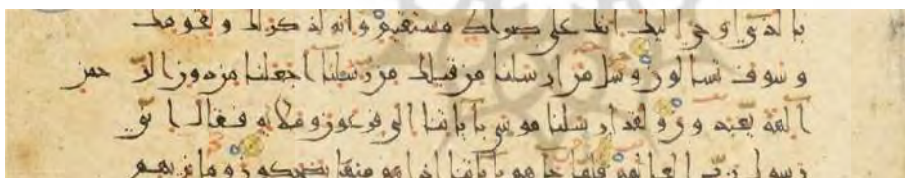 بالذي اوحي اليك انك على صراط مستقيم وانه لذكر لك ولقومك
وسوف تسالون وسل من ارسلنا من قبلك من رسلنا اجعلنا من دون الر حمن
الهة يعبدون ولقد ارسلنا موسى باياتنا الى فرعون وملايه فقال اني
رسول رب العالمين فلما جاهم باياتنا اذا هم منها يضحكون وما نريهم